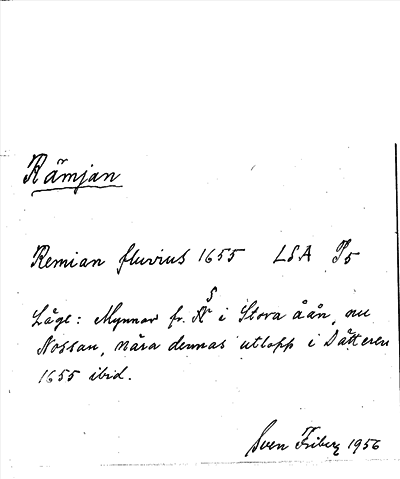 Rämjan
Remian fluvius 1655 LSA P5
Läge: Mynnar fr. S i Stora åån, nu
Nossan, nära dennas utlopp i Dätteren
1655 ibid.
Sven Friberg 1956